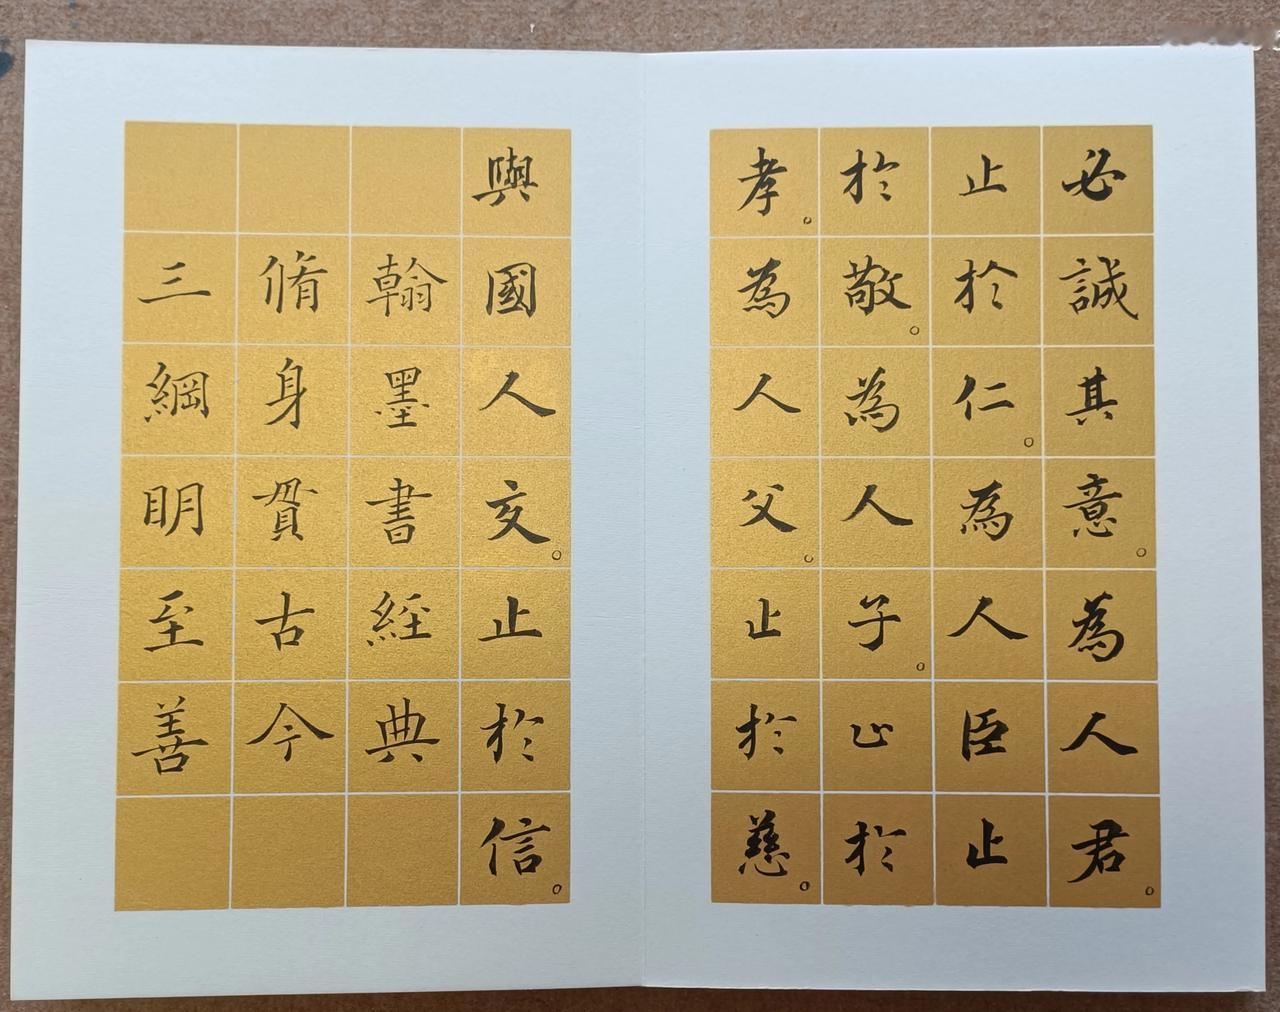 必誠其意。為人君。
止於仁。為人臣止
於敬。為人子。止於
孝。為人父。止於慈。
與國人交。止於信。
翰墨書經典
脩身貫古今
三綱明至善